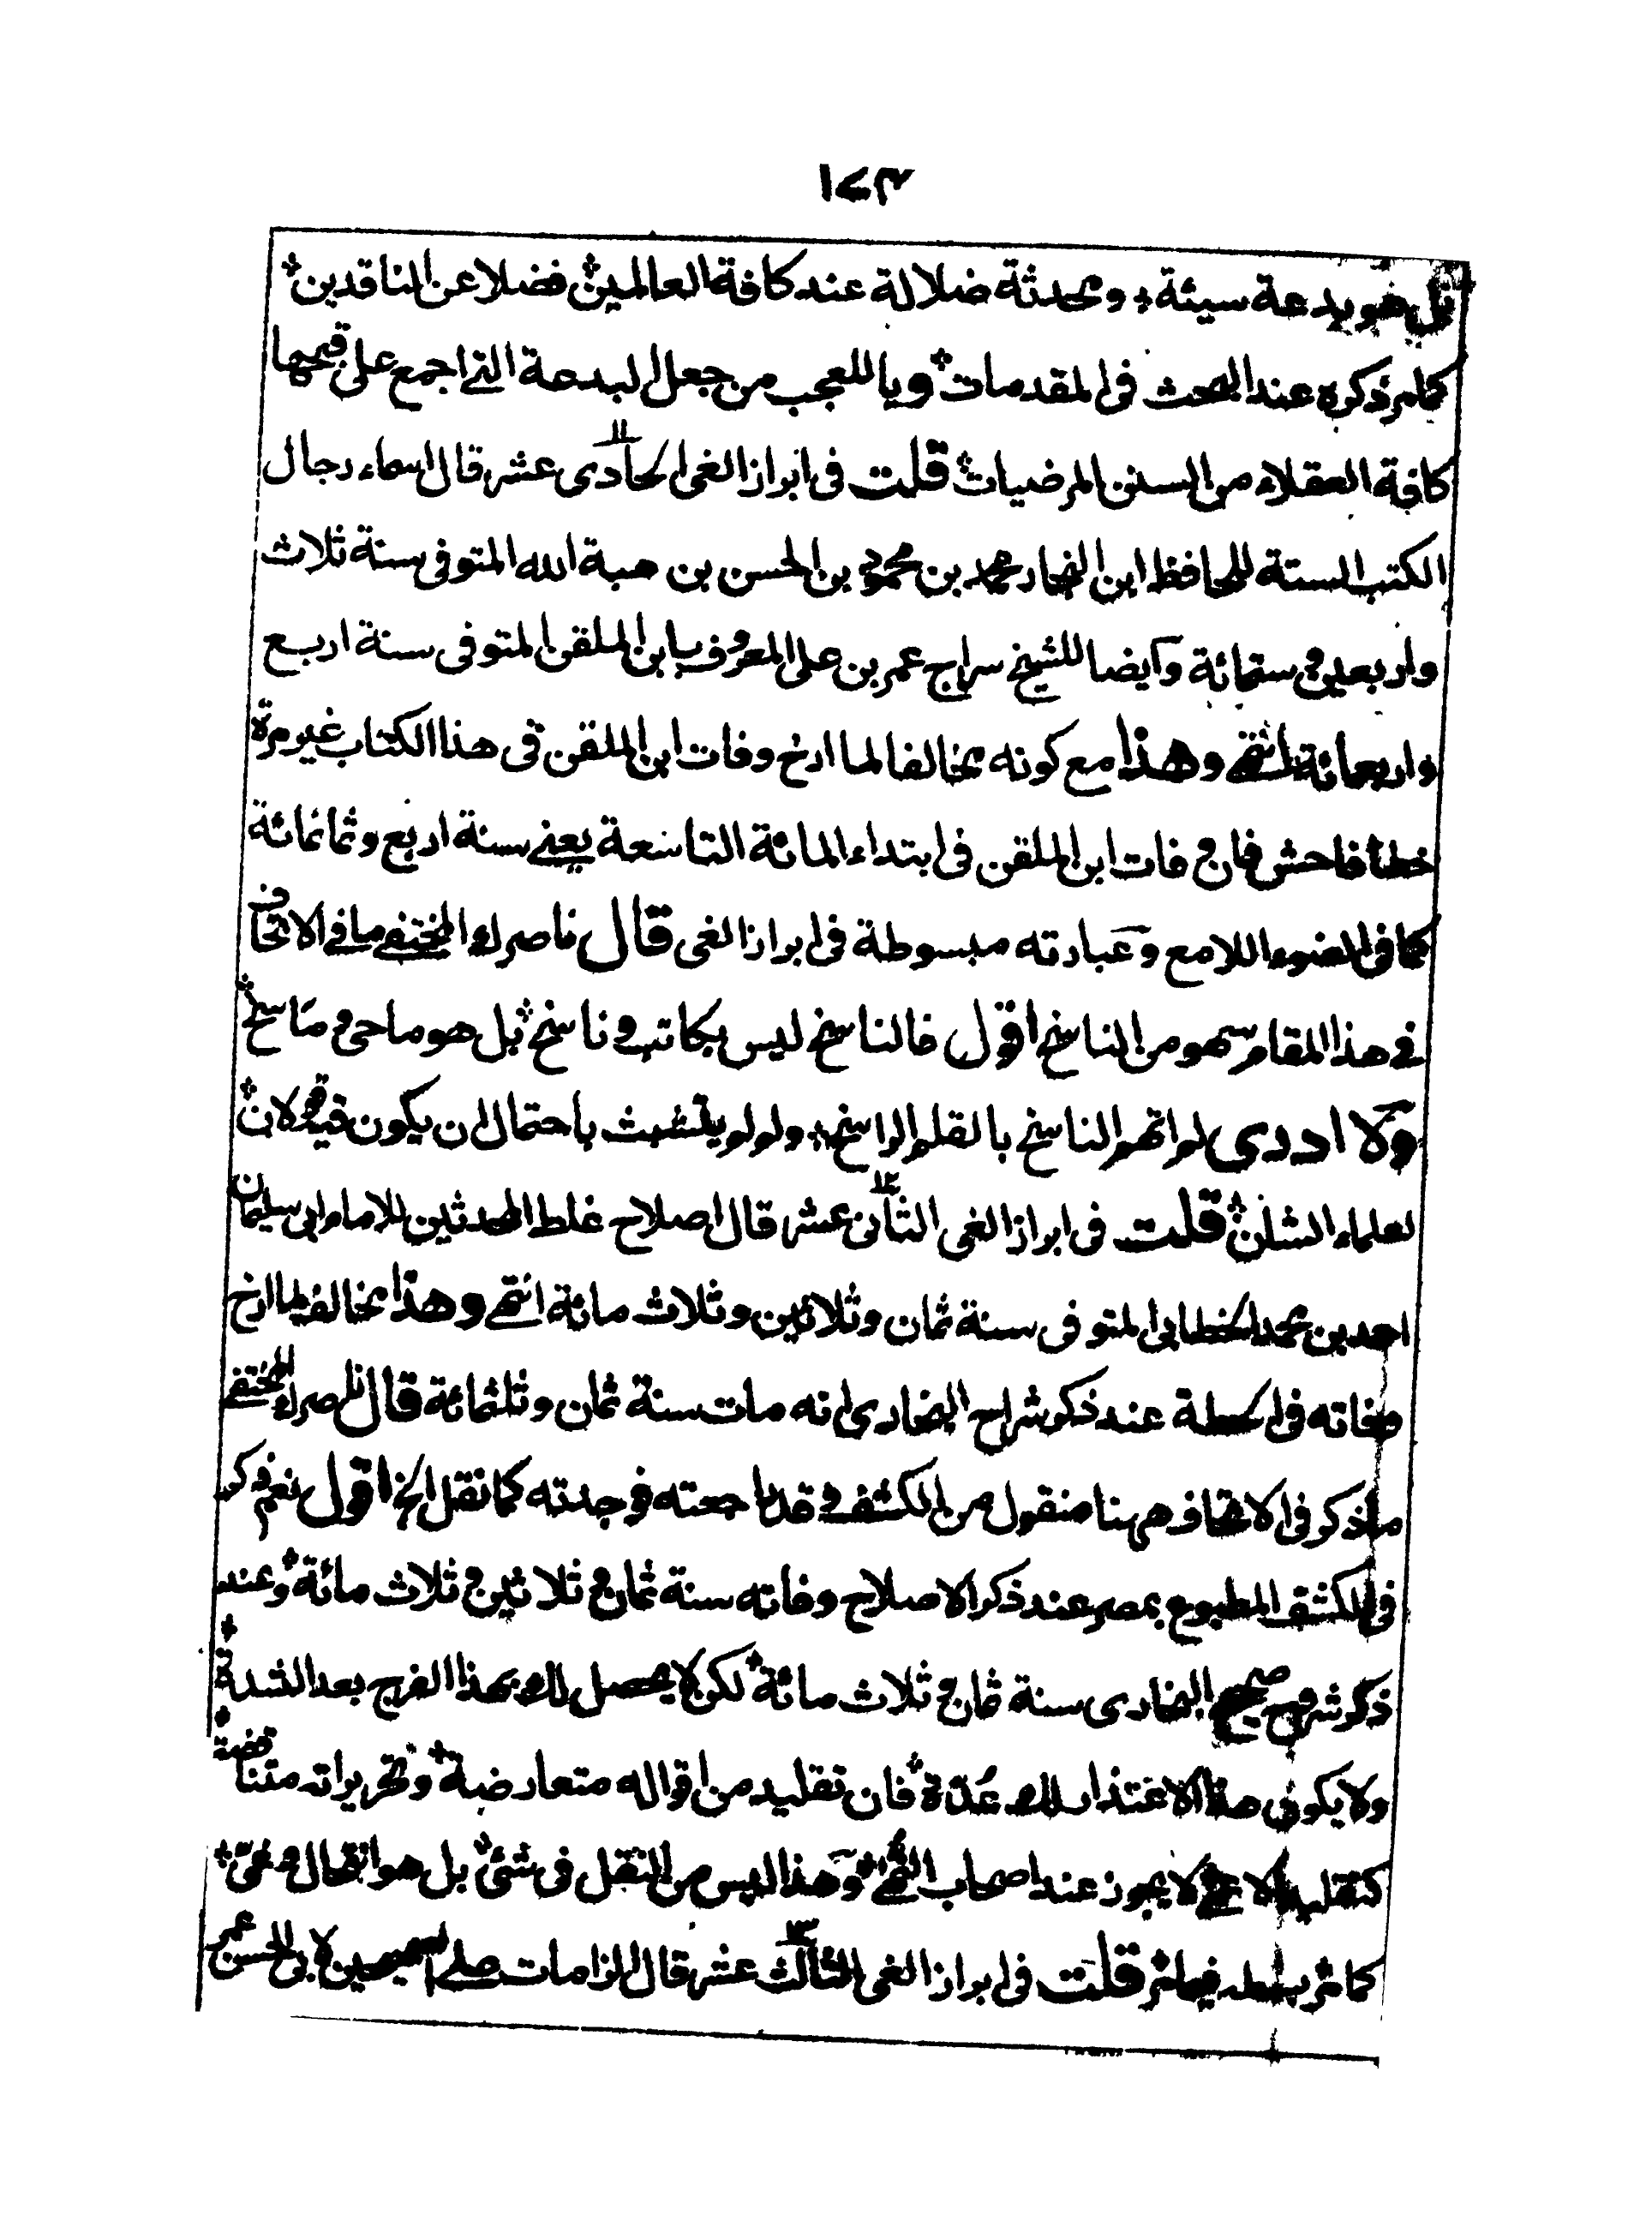 ١٧٣
بل هو بدعة سيئة؞ ومحدثة ضلالة عند كافة العالمين؞ فضلا عن الناقدين؞
كما مر ذكره عند البحث فى المقدمات؞ ويا للعجب من جعل البدعة التى اجمع على قبحها
كافة العقلاء من السنن المرضيات؞ قلت فى ابراز الغى الحادى عشر ١١ قال اسماء رجال
الكتب الستة للحافظ ابن النجار محمد بن محمود بن الحسن بن هبة الله المتوفى سنة ثلاث
واربعين وستمائة وايضا للشيخ سراج عمر بن على المعروف بابن الملقن المتوفى سنة اربع
واربعمائة انتهى وهذا مع كونه مخالفا لما ارخ وفات ابن الملقن فى هذا الكتاب غير مرة
خطأ فاحش فان وفات ابن الملقن فى ابتداء المائة التاسعة يعنى سنة اربع وثمانمائة
كما فى الضوء اللامع وعبارته مبسوطة فى ابراز الغى قال ناصرك المختفى ما فى الاتحاف
فى هذا المقام سهو من الناسخ اقول فالناسخ ليس بكاتب وناسخ؞ بل هو ماحى وماسخ؞
ولا ادرى لم اتهم الناسخ بالقلم الراسخ؞ ولم لم يتشبث باحتمال ان يكون فيه قولان؞
لعلماء الشان؞ قلت فى ابراز الغى الثانى عشر ١٢ قال اصلاح غلط المحدثين للامام ابى سليمان
احمد بن محمد الخطابى المتوفى سنة ثمان وثلاثين وثلاث مائة انتهى وهذا مخالف لما ارخ
وفاته فى الحطة عند ذكر شراح البخارى انه مات سنة ثمان وثلثمائة قال ناصرك المختفى
ما ذكر فى الاتحاف ههنا منقول من الكشف وقد راجعته فوجدته كما نقل الخ اقول نعم ذكر
فى الكشف المطبوع بمصر عند ذكر الاصلاح وفاته سنة ثمان وثلاثين وثلاث مائة؞ وعند
ذكر شروح صحيح البخارى سنة ثمان وثلاث مائة؞ لكن لا يحصل لك بهذا الفرج بعد الشدة؞
ولا يكون هذا الاعتذار لك عُدّة؞ فان تقليد من اقواله متعارضة؞ وتحريراته متناقضة؞
كتقليد الاعمى لا يجوز عند اصحاب النهى؞ وهذا ليس من النقل فى شئ؞ بل هو انتحال وغىّ؞
كما مر بسطه فيما مر قلت فى ابراز الغى الثالث عشر ١٣ قال الزامات على الصحيحين لابى الحسن عمر